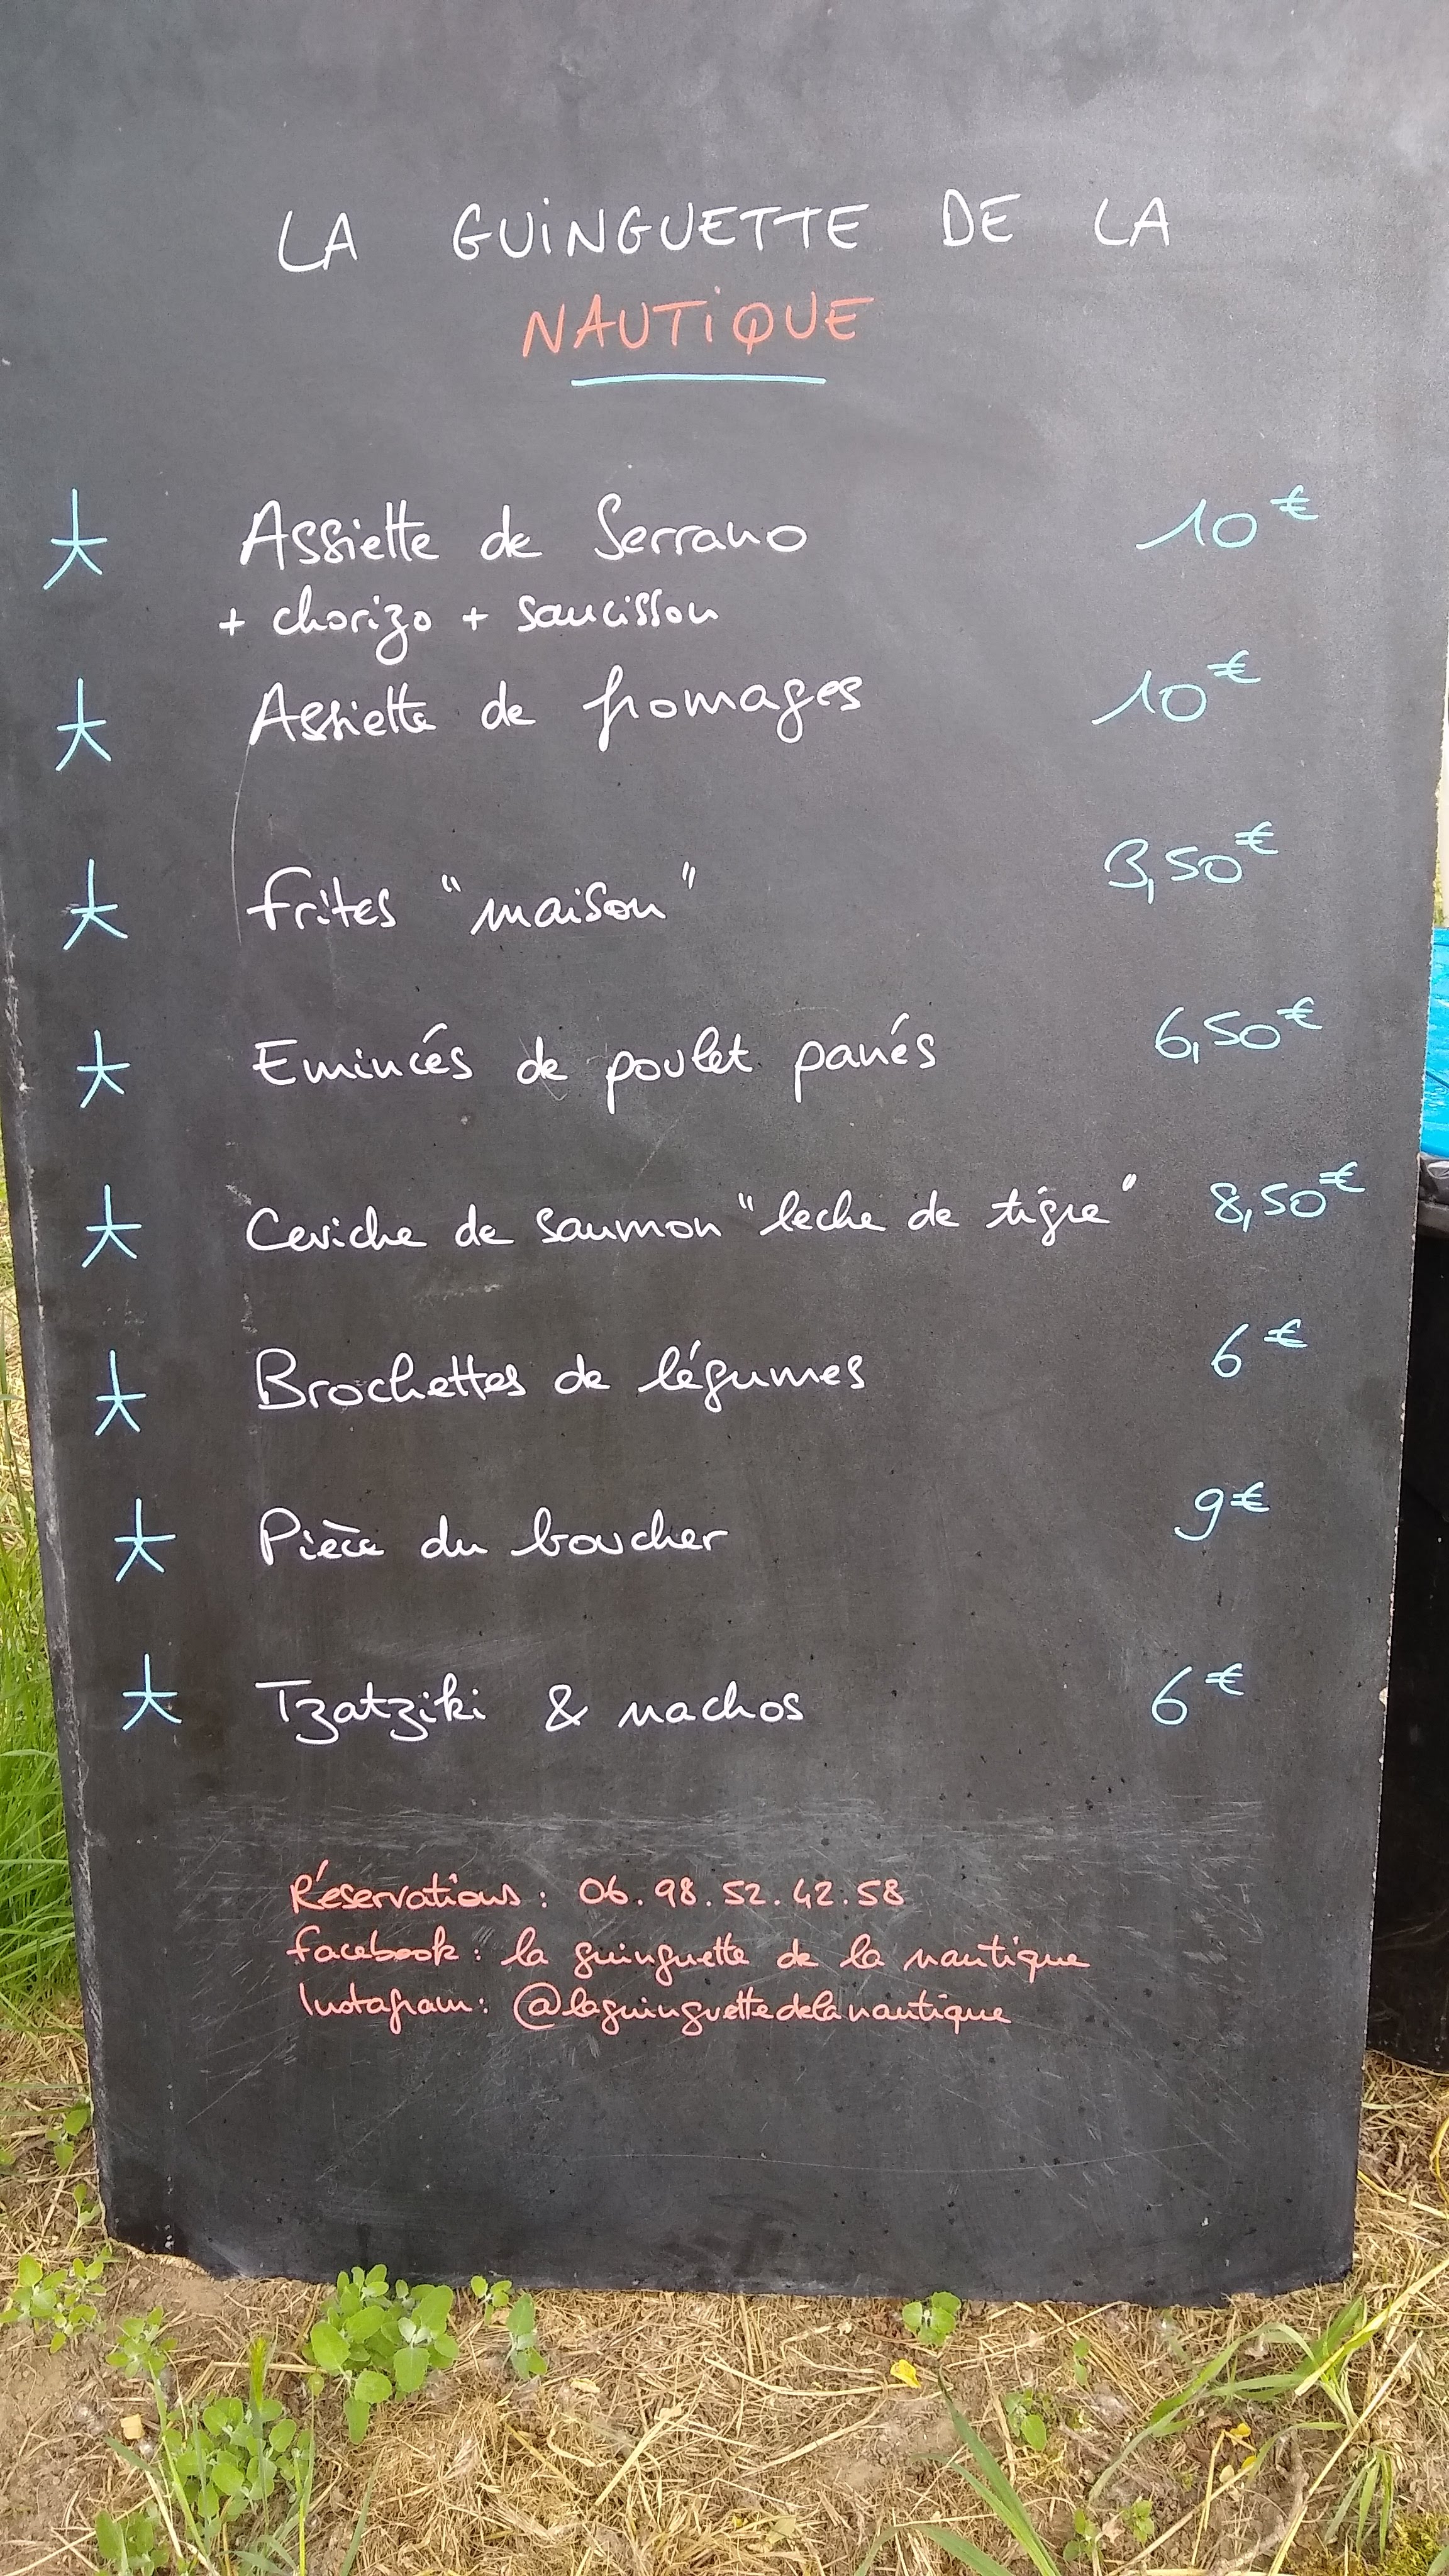 LA GUINGUETTE DE LA
NAUTIQUE
Assiette de Serrano 10€
+ chorizo + saucisson
Assiette de fromages 10€
Frites "maison" 3,50€
Emincés de poulet panés 6,50€
Ceviche de saumon "leche de tigre" 8,50€
Brochettes de légumes 6€
Pièce du boucher 9€
Tzatziki & nachos 6€
Réservations : 06.98.52.42.58
facebook : la guinguette de la nautique
Instagram : @laguinguettedelanautique